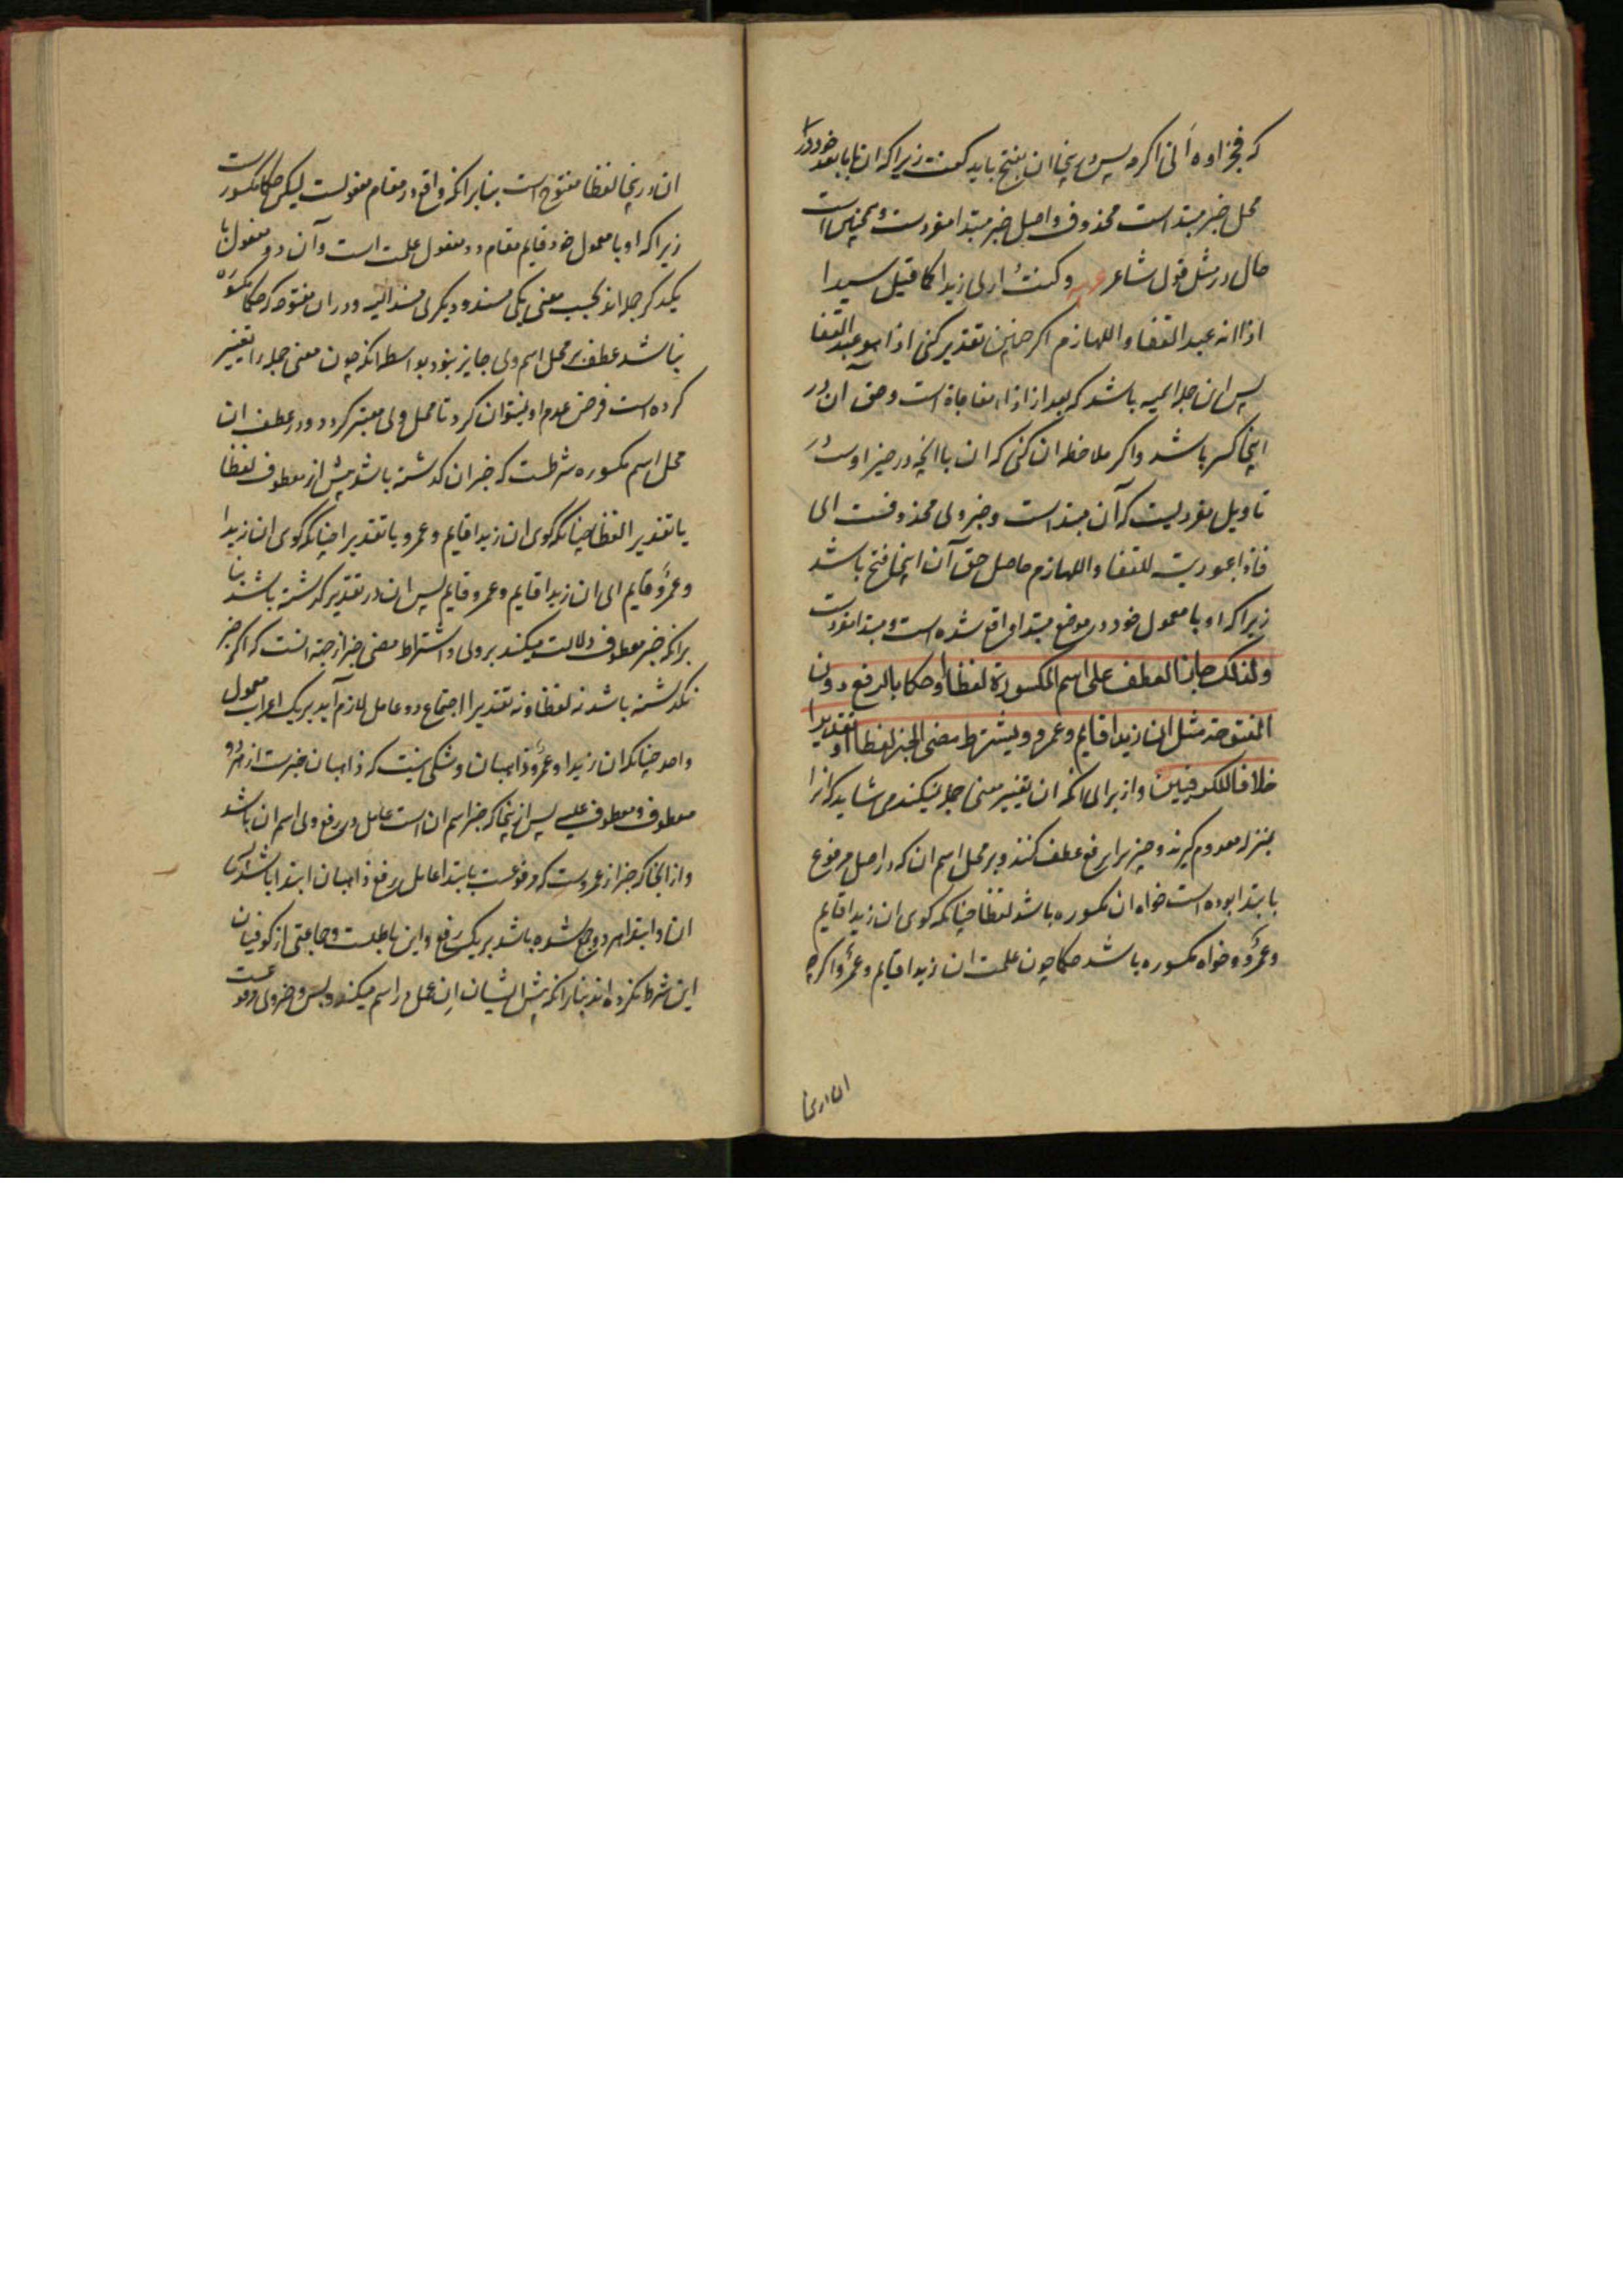 که فجزاوه انی اکرمه پس درینجا ان بفتح باید گفت زیراکه ان با ما بعد خود در
محل خبر مبتداست محذوف و اصل خبر مبتدا مفردست و همچنین است
حال در مثل قول شاعر وکنت اری زیدا کما قیل سیدا
اذا انه عبد القفا و اللهازم اگر چنین تقدیر کنی اذا هو عبد القفا
پس ان جمله اسمیه باشد که بعد از اذاء مفاجاة است و حق آن در
اینجا کسر باشد و اگر ملاحظه ان کنی که ان با انچه در حیز اوست در
تاویل مفردیست که آن مبتداست و خبر وی محذوفست ای
فاذا عبودیته للقفا و اللهازم حاصل حق آن اینجا فتح باشد
زیراکه او با معمول خود در موضع مبتدا واقع شده است و مبتدا مفردست
ولذلک جاز العطف علی اسم المکسورة لفظا او حکما بالرفع دون
المفتوحة مثل ان زیدا قایم و عمرو ویشترط مضی الخبر لفظا او تقدیرا
خلافا للکوفیین و از برای انکه ان تغییر معنی جمله نمیکند می شاید که انرا
بمنزله معدوم گیرند و چیزی را برفع عطف کنند بر محل اسم ان که در اصل مرفوع
بابتدا بوده است خواه ان مکسوره باشد لفظا چنانکه گوی ان زیدا قایم
و عمرو و خواه مکسوره باشد حکما چون علمت ان زیدا قایم و عمرو اگرچه
ان درینجا
ان درینجا لفظا مفتوح است بنا برانکه واقع در مقام مفعولست لیکن حکما مکسورست
زیراکه او با معمول خود قایم مقام دو مفعول علمت است و آن دو مفعول با
یکدکر جمله اند بحسب معنی یکی مسند و دیکری مسند الیه و در ان مفتوحه که حکما مکسوره
نباشد عطف بر محل اسم وی جایز نبود بواسطه انکه چون معنی جمله را تغییر
کرده است فرض عدم او نتوان کرد تا محل وی معتبر کردد و در عطف ان
محل اسم مکسوره شرطست که خبر ان کذشته باشد پیش از معطوف لفظا
یا تقدیرا لفظا چنانکه گوی ان زیدا قایم و عمرو یا تقدیرا چنانکه گوی ان زیدا
و عمرو قایم ای ان زیدا قایم و عمرو قایم پس ان در تقدیر کذشته باشد بنا
برانکه خبر معطوف دلالت میکند بر وی و اشتراط مضی خبر از جهة انست که اکر خبر
نکذشته باشد نه لفظا و نه تقدیرا اجتماع دو عامل لازم آید بر یک اعراب معمول
واحد چنانکه ان زیدا و عمرو ذاهبان و شکی نیست که ذاهبان خبرست از هر دو
معطوف و معطوف علیه پس ازینجا که خبر اسم ان است عامل در رفع وی اسم ان باشد
و از انجا که خبر از عمروست که مرفوعست بابتدا عامل در رفع ذاهبان ابتدا باشد
ان و ابتدا هر دو جمع شده باشد بر یک رفع و این باطلست و جماعتی از کوفیان
این شرط نکرده اند بنا برانکه پیش ایشان ان عمل در اسم میکند و بس و خبر وی مرفوعست